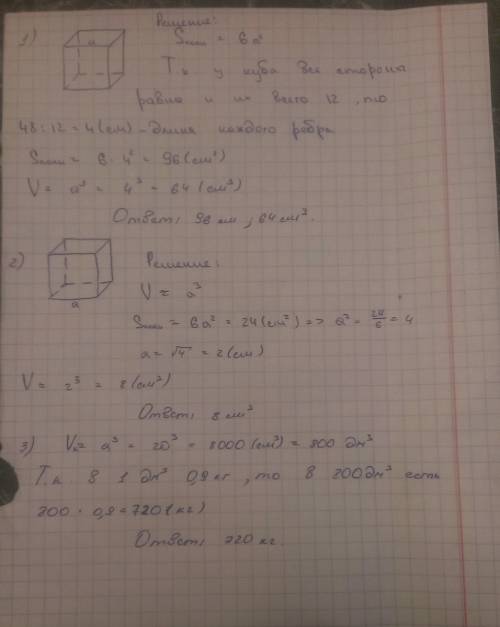 Решение:
1) a Sполн = 6a²
Т.к у куба все стороны
равно и их всего 12, то
48 : 12 = 4 (см) - длина каждого ребра
Sполн = 6 · 4² = 96 (см²)
V = a³ = 4³ = 64 (см³)
Ответ: 96 см, 64 см³.
2) Решение:
a
V = a³
Sполн = 6a² = 24 (см²) => a² = 24/6 = 4
a = √4 = 2 (см)
V = 2³ = 8 (см³)
Ответ: 8 см³
3) Vк = a³ = 20³ = 8000 (см³) = 800 дм³
Т.к в 1 дм³ 0,9 кг, то в 800 дм³ есть
800 · 0,9 = 720 (кг)
Ответ: 720 кг.